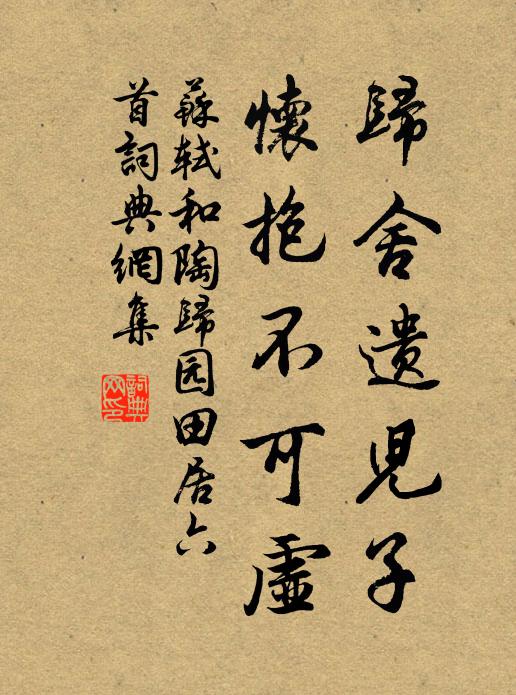 歸舍遺兒子
懷抱不可虛
蘇軾和陶歸园田居六
首詞典網集
詞典
网印